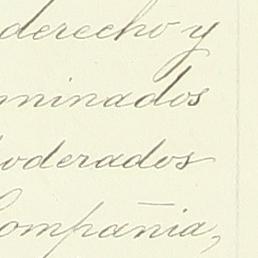 derecho y
minados
oderados
ompañia,